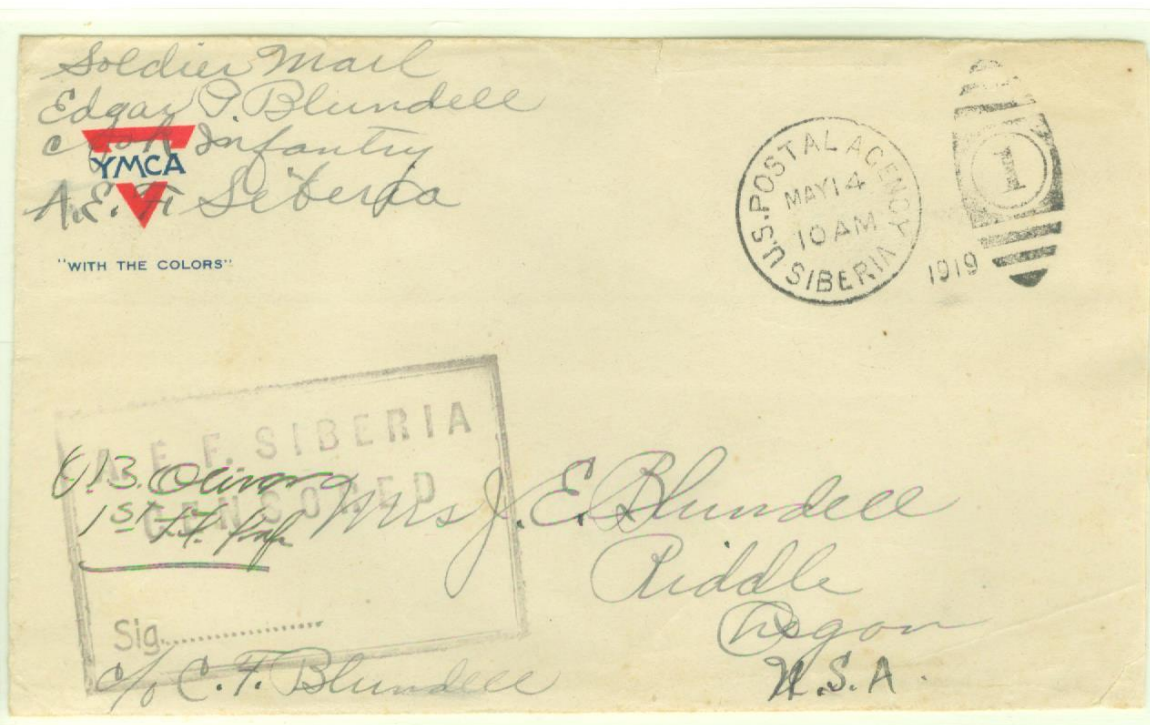 Soldier Mail
Edgar P. Blundell
Infantry
A.E.F. Siberia
YMCA
"WITH THE COLORS"
U.S. POSTAL AGENCY SIBERIA
MAY 14
10 AM
1919
1
A. E. F. SIBERIA
CENSORED
1st Lt. Inf.
Sig..................
Mrs J. E. Blundell
Riddle
Oregon
U.S.A.
c/o C. F. Blundell